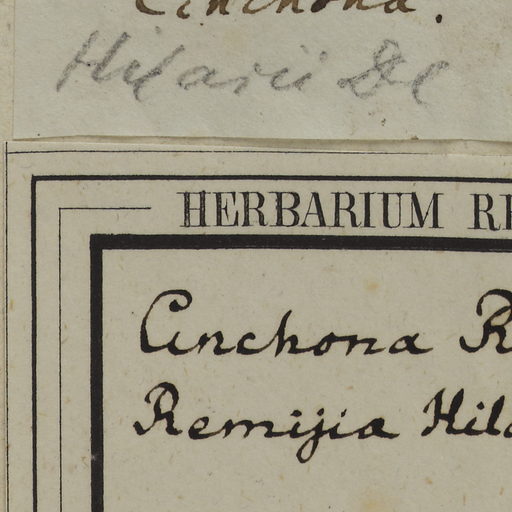 Cinchona.
Hilarii DC
HERBARIUM RE
Cinchona R
Remijia Hila